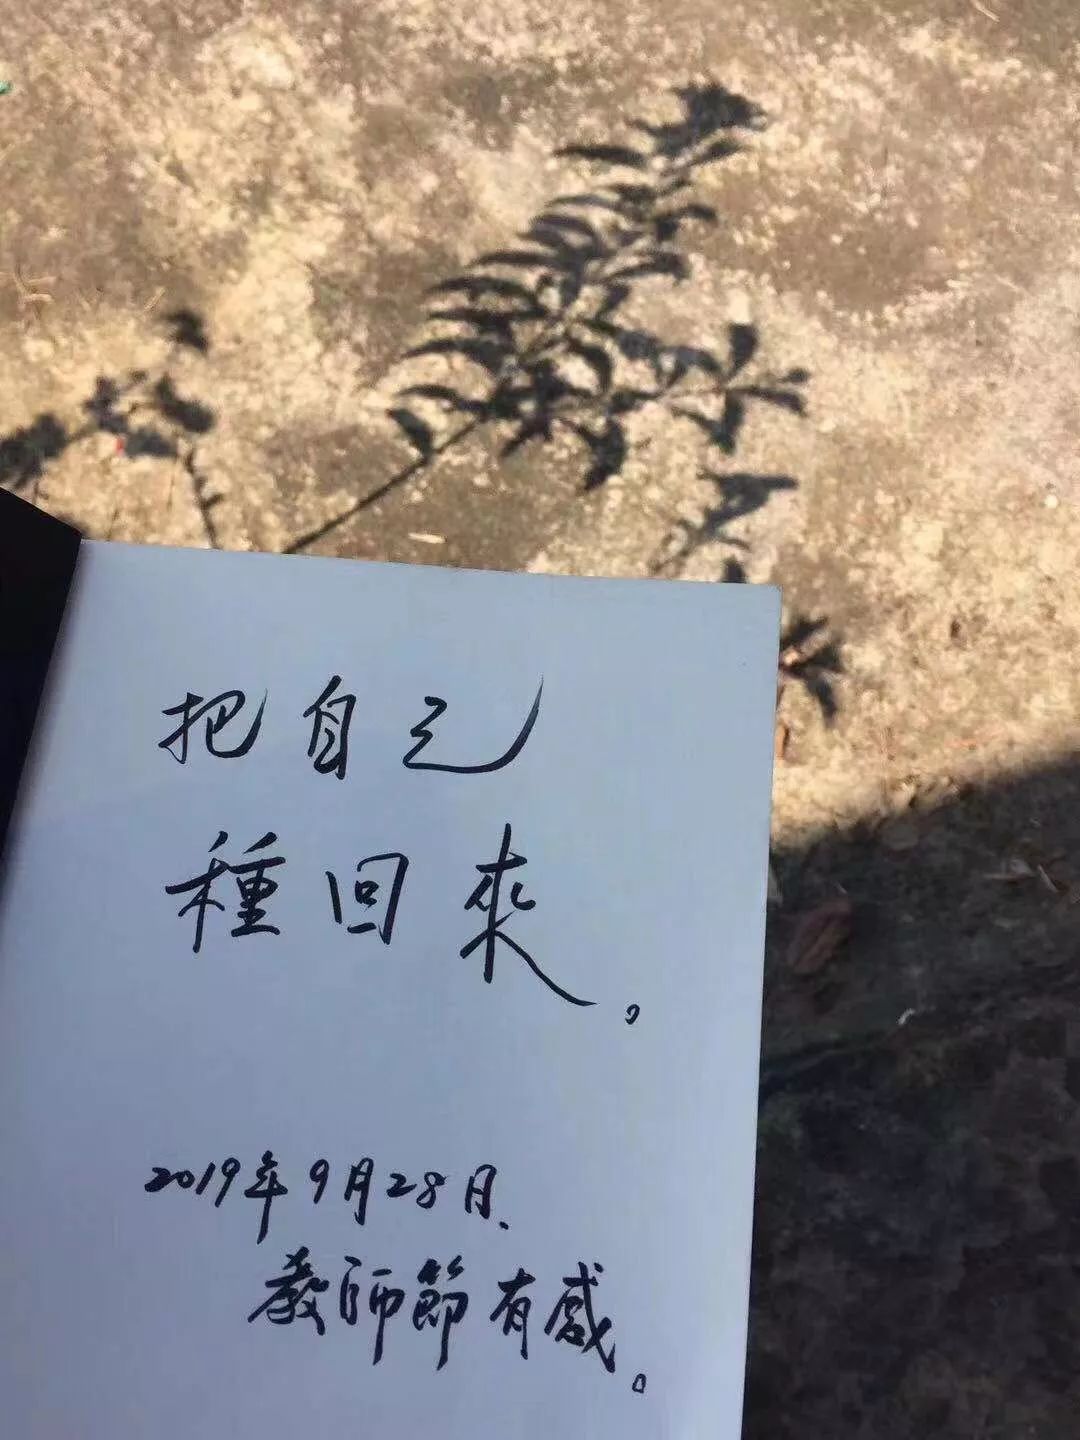 把自己
種回來。
2019年9月28日、
教師節有感。